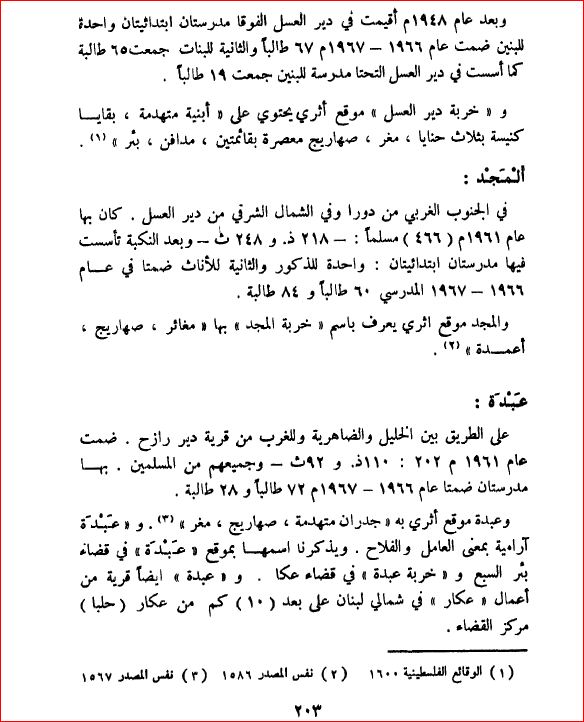 وبعد عام ١٩٤٨م أقيمت في دير العسل الفوقا مدرستان ابتدائيتان واحدة
للبنين ضمت عام ١٩٦٦ – ١٩٦٧م ٦٧ طالباً والثانية للبنات جمعت ٦٥ طالبة
كما أسست في دير العسل التحتا مدرسة للبنين جمعت ١٩ طالباً .
و « خربة دير العسل » موقع أثري يحتوي على « أبنية متهدمة ، بقايــا
كنيسة بثلاث حنايا ، مغر ، صهاريج معصرة بقائمتين ، مدافن ، بئر » (١) .
ألْـمَـجْـد :
في الجنوب الغربي من دورا وفي الشمال الشرقي من دير العسل . كان بها
عام ١٩٦١م ( ٤٦٦ ) مسلماً : – ٢١٨ ذ. و ٢٤٨ ث – وبعد النكبة تأسست
فيها مدرستان ابتدائيتان : واحدة للذكور والثانية للأناث ضمتا في عـــام
١٩٦٦ – ١٩٦٧ المدرسي ٦٠ طالباً و ٨٤ طالبة .
والمجد موقع اثري يعرف باسم « خربة المجد » بها « مغائر ، صهاريج ،
أعمـــدة » (٢) .
عَـبْـدَة :
على الطريق بين الخليل والضاهرية وللغرب من قرية دير رازح . ضمت
عام ١٩٦١ م ٢٠٢ : ١١٠ذ. و ٩٢ث – وجميعهم من المسلمين . بهــا
مدرستان ضمتا عام ١٩٦٦ – ١٩٦٧م ٧٢ طالباً و ٢٨ طالبة .
وعبدة موقع أثري به « جدران متهدمة ، صهاريج ، مغر » (٣) . و « عَـبْـدَة
آرامية بمعنى العامل والفلاح . ويذكرنا اسمهــا بموقع « عَـبْـدَة » في قضاء
بئر السبع و « خربة عبدة » في قضاء عكا . و « عبدة » ايضاً قرية من
أعمال « عكار » في شمالي لبنان على بعد ( ١٠ ) كم من عكار ( حلبا )
مركز القضاء .
(١) الوقائع الفلسطينية ١٦٠٠ (٢) نفس المصدر ١٥٨٦ (٣) نفس المصدر ١٥٦٧
٢٠٣